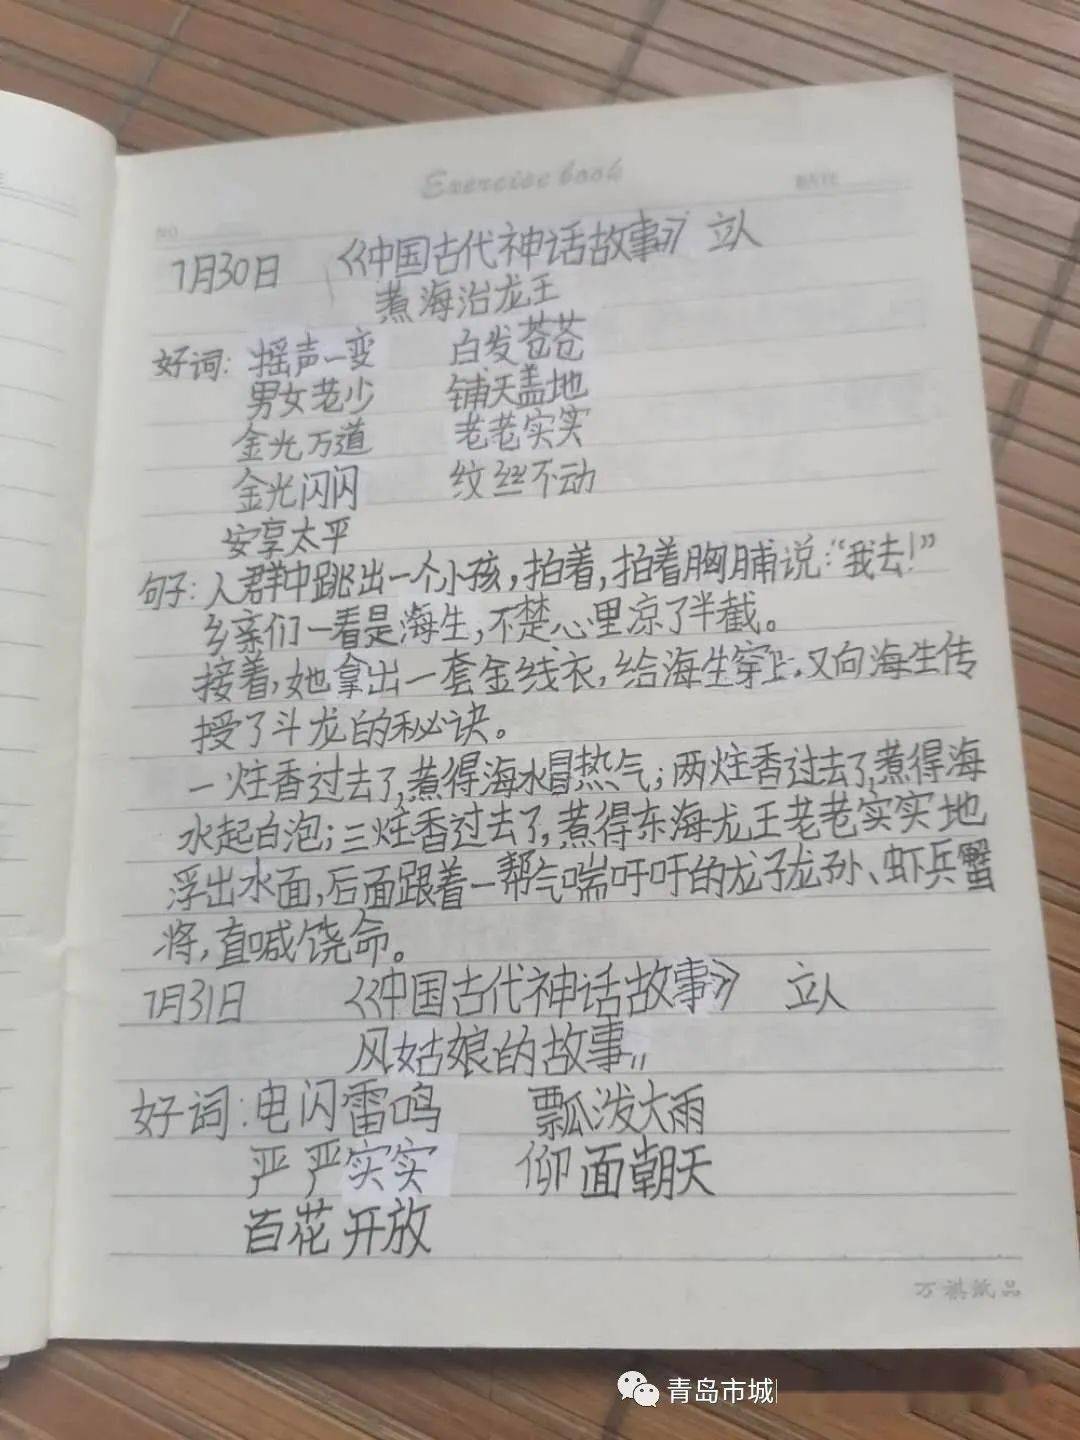 Exercise book
NO.
DATE
7月30日 《中国古代神话故事》 立人
煮海治龙王
好词: 摇声一变 白发苍苍
男女老少 铺天盖地
金光万道 老老实实
金光闪闪 纹丝不动
安享太平
句子: 人群中跳出一个小孩,拍着,拍着胸脯说:“我去!”
乡亲们一看是海生,不禁心里凉了半截。
接着,她拿出一套金线衣,给海生穿上,又向海生传
授了斗龙的秘诀。
一炷香过去了,煮得海水冒热气;两炷香过去了,煮得海
水起白泡;三炷香过去了,煮得东海龙王老老实实地
浮出水面,后面跟着一帮气喘吁吁的龙子龙孙、虾兵蟹
将,直喊饶命。
7月31日 《中国古代神话故事》 立人
风姑娘的故事
好词: 电闪雷鸣 瓢泼大雨
严严实实 仰面朝天
百花开放
万祺纸品
青岛市城